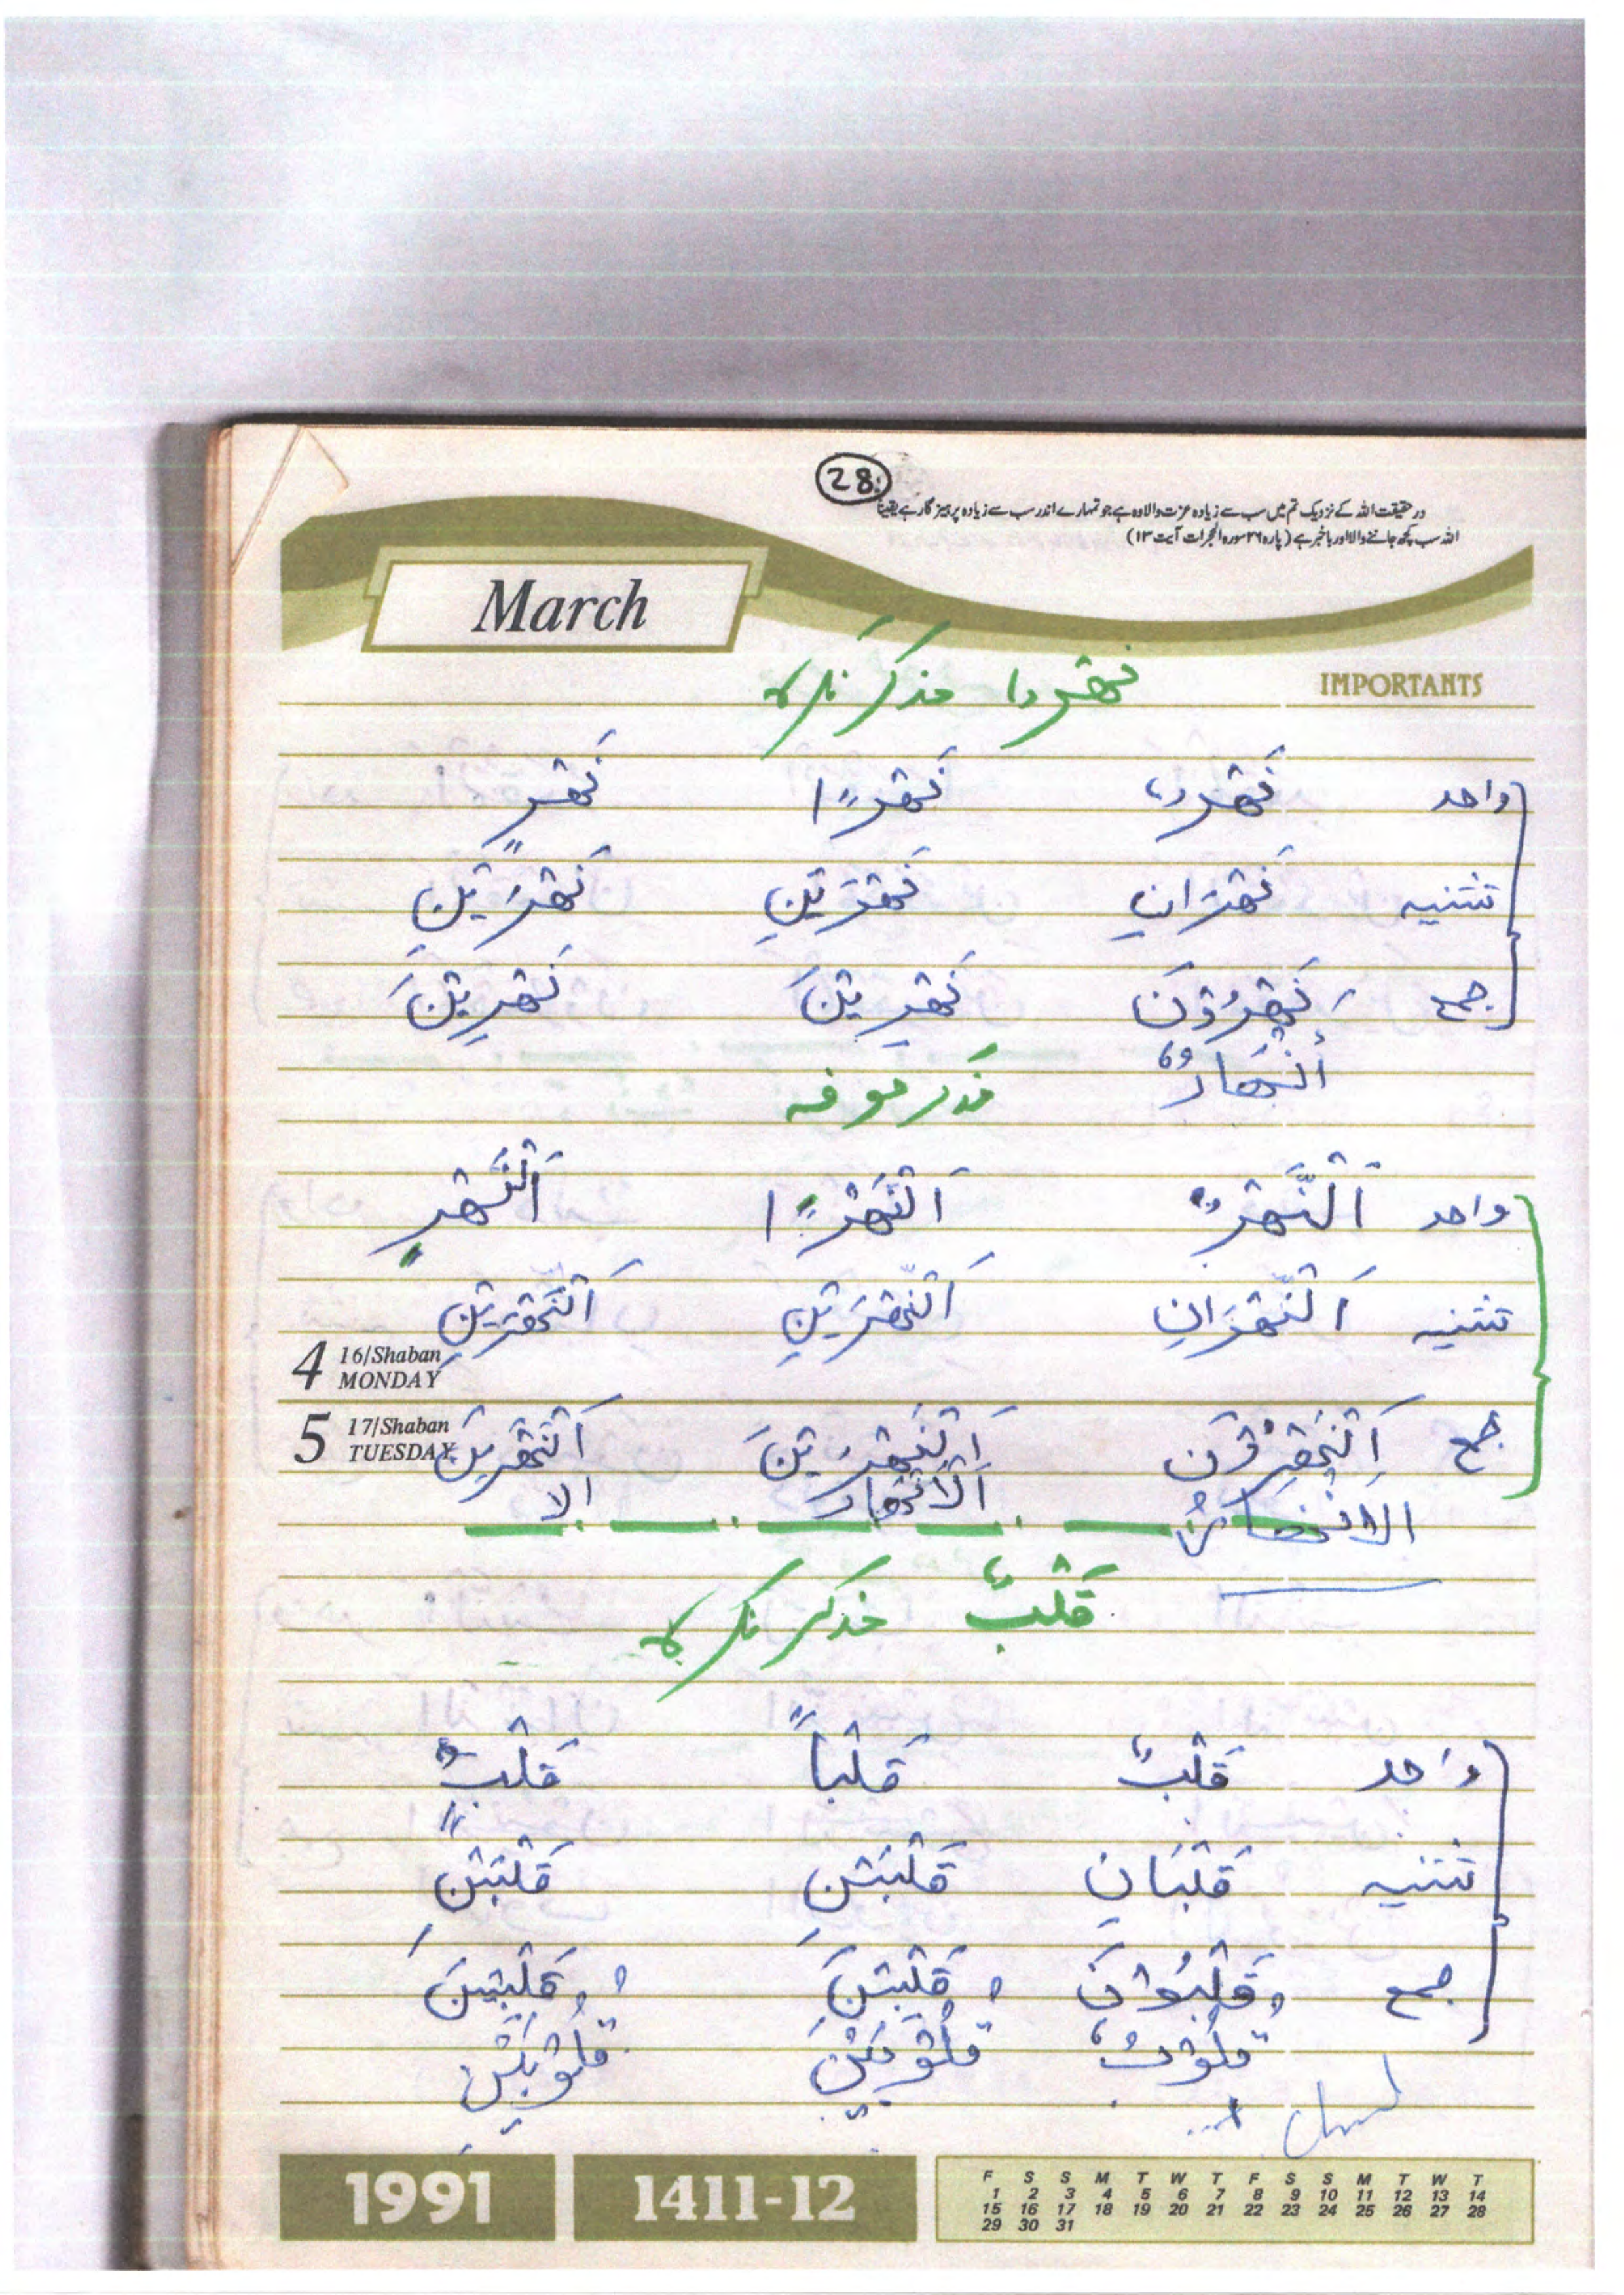 28
در حقیقت اللہ کے نزدیک تم میں سب سے زیادہ عزت والا وہ ہے جو تمہارے اندر سب سے زیادہ پرہیز گار ہے یقیناً
اللہ سب کچھ جاننے والا اور باخبر ہے (پارہ ۲۶ سورہ الحجرات آیت ۱۳)
March
IMPORTANTS
مذکر نکرہ
واحد نَهْرٌ نَهْرًا نَهْرٍ
تثنیہ نَهْرَانِ نَهْرَيْنِ نَهْرَيْنِ
جمع نَهْرُوْنَ نَهْرِيْنَ نَهْرِيْنَ
اَنْهَارٌ
معرفہ
واحد اَلنَّهْرُ اَلنَّهْرًا اَلنَّهْرِ
تثنیہ اَلنَّهْرَانِ اَلنَّهْرَيْنِ اَلنَّهْرَيْنِ
4 16/Shaban MONDAY
5 17/Shaban TUESDAY
جمع اَلنَّهْرُوْنَ اَلنَّهْرِيْنَ اَلنَّهْرِيْنَ
الْاَنْهَارُ اَلْاَنْهَارَ الا
قَلْبٌ مذکر نکرہ
واحد قَلْبٌ قَلْباً قَلْبٍ
تثنیہ قَلْبَانِ قَلْبَيْنِ قَلْبَيْنِ
جمع قَلْبُوْنَ قَلْبِيْنَ قَلْبِيْنَ
قُلُوْبٌ قُلُوْبَيْنَ قُلُوْبَيْنِ
1991
1411-12
F S S M T W T F S S M T W T
1 2 3 4 5 6 7 8 9 10 11 12 13 14
15 16 17 18 19 20 21 22 23 24 25 26 27 28
29 30 31